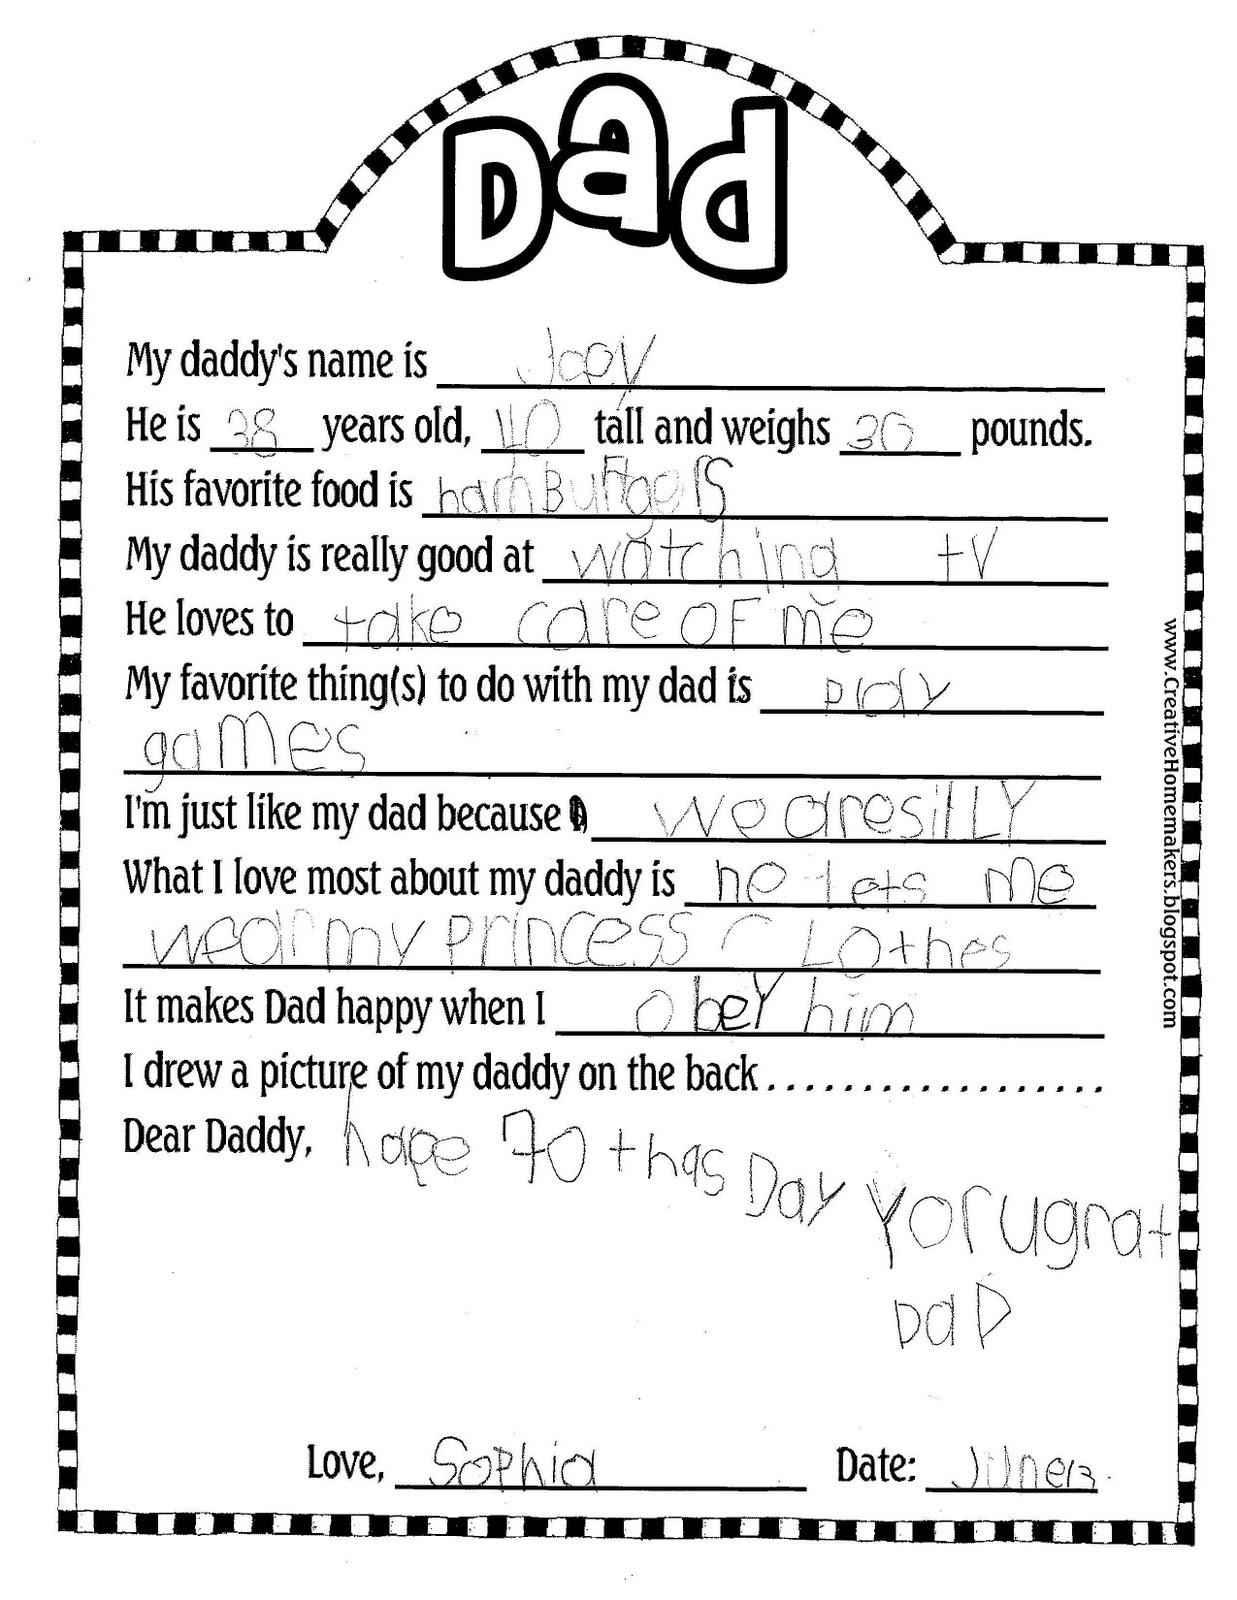 Dad
My daddy's name is Joey
He is 38 years old, 40 tall and weighs 30 pounds.
His favorite food is hamBurgers
My daddy is really good at watching tv
He loves to take care OF me
My favorite thing(s) to do with my dad is play
games
I'm just like my dad because we aresiLLY
What I love most about my daddy is he lets me
wear my princess cLothes
It makes Dad happy when I obeY him
I drew a picture of my daddy on the back..................
Dear Daddy, hape 70 thas Day Yor ugrat
DaD
Love, Sophia Date: June 13
www.CreativeHomemakers.blogspot.com